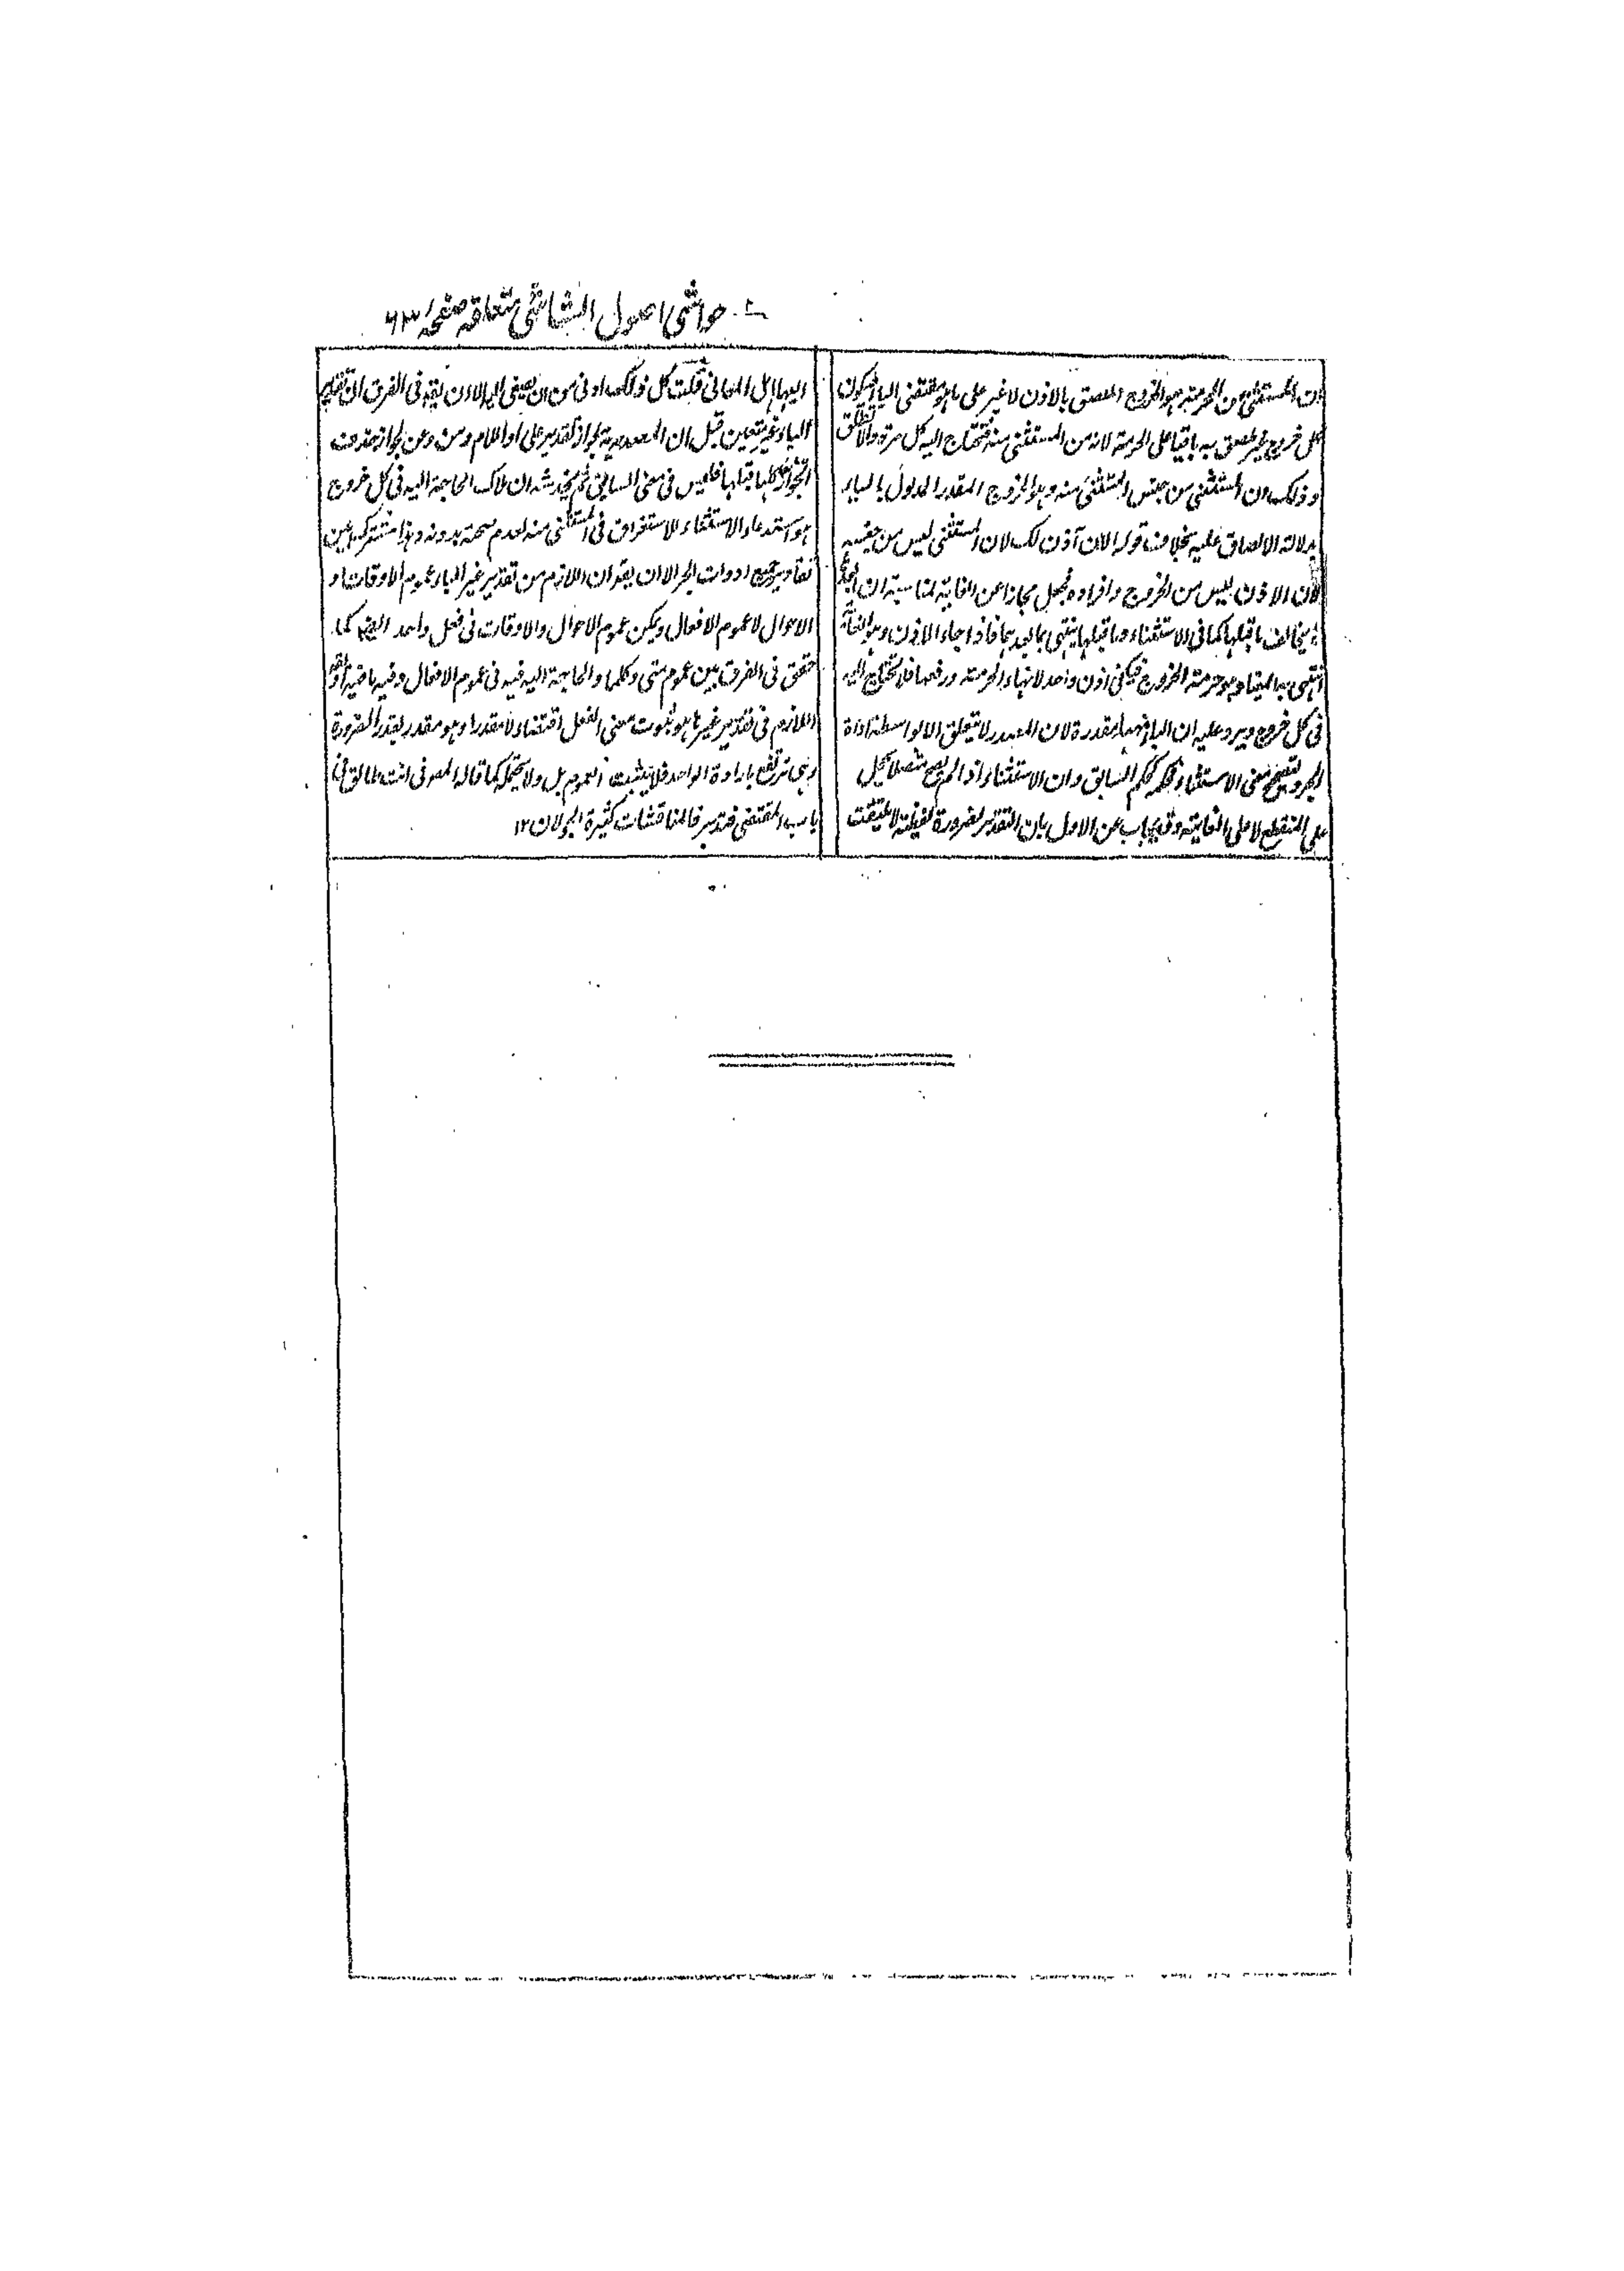 حواشی اصول الشاشی متعلقه صفحہ ۶۳
ان المستثنى من الحرمته هو الخروج الملصق بالاذن لا غير على ما هو مقتضى الباء فيكون
كل خروج غير ملصق به باقيا على الحرمة لانه من المستثنى منه فتحتاج اليه كل مرة والا تطلق
وذلك ان المستثنى من جنس المستثنى منه وهو الخروج المقدر المدلول بالباء
بدلالة الالصاق عليه بخلاف قوله الا ان آذن لك لان المستثنى ليس من جنسه
لان الاذن ليس من الخروج وافراده فجعل مجازا عن الغاية لمناسبة ان
يخالف ما قبلها كما في الاستثناء وما قبلها ينتهي بما بعدها فاذا جاء الاذن وهو الغاية
انتهى به المغيا وهو حرمة الخروج فيكفي اذن واحد لانهاء الحرمته ورفعها فلا تحتاج اليه
في كل خروج ويرد عليه ان الباء ههنا مقدرة لان المصدر لا يتعلق الا بواسطة اداة
الجر ويصح معنى الاستثناء فحكمه كحكم السابق وان الاستثناء اذا لم يصح متصلا يحمل
على المنقطع لا على الغاية وقد يجاب عن الاول بان التقدير لضرورة لفظية لا يلتفت
اليها اهل المعاني قلت كل ذلك اوفى من ان يصغى اليه الا ان يقيد في الفرق ان تقدير
الباء غير متعين قبل ان المصدرية لجواز تقدير على او اللام ومن وعن لجواز حذف
الجوار كلها قبلها فليس في معنى السابق ثم يخدشه ان ملاك الحاجة اليه في كل خروج
هو استدعاء الاستثناء الاستغراق في المستثنى منه لعدم صحته بدونه وهذا مشترك بين
تقادير جميع ادوات الجر الا ان يقر ان اللازم من تقدير غير الباء عموم الاوقات او
الاحوال لا عموم الافعال ويمكن عموم الاحوال والاوقات في فعل واحد ايضا كما
حقق في الفرق بين عموم متى وكلما والحاجة اليه فيه في عموم الافعال وفيه ما فيه
اللازم في تقدير غيرها هو ثبوت معنى الفعل اقتضاء لا مقدرا وهو مقدر بقدر الضرورة
وهي ترتفع بارادة الواحد فلا يثبت العموم بل ولا يحتمله كما قاله المص في انت طالق في
باب المقتضى فتدبر فالمناقشات كثيرة الجولان ۱۲